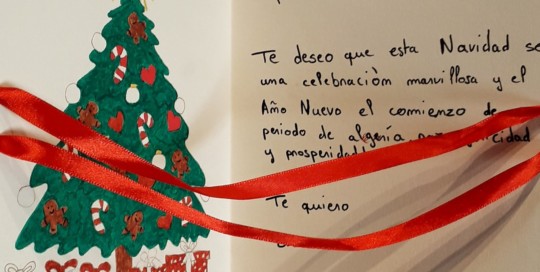 Te deseo que esta Navidad se
una celebraciòn maravillosa y el
Año Nuevo el comienzo de
periodo de algería
y prosperidad
Te quiero